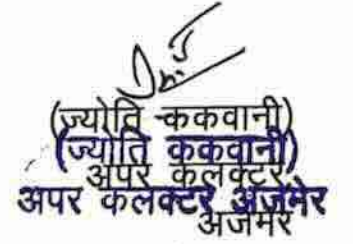 (ज्योति ककवानी)
(ज्योति ककवानी)
अपर कलेक्टर
अपर कलेक्टर अजमेर
अजमेर